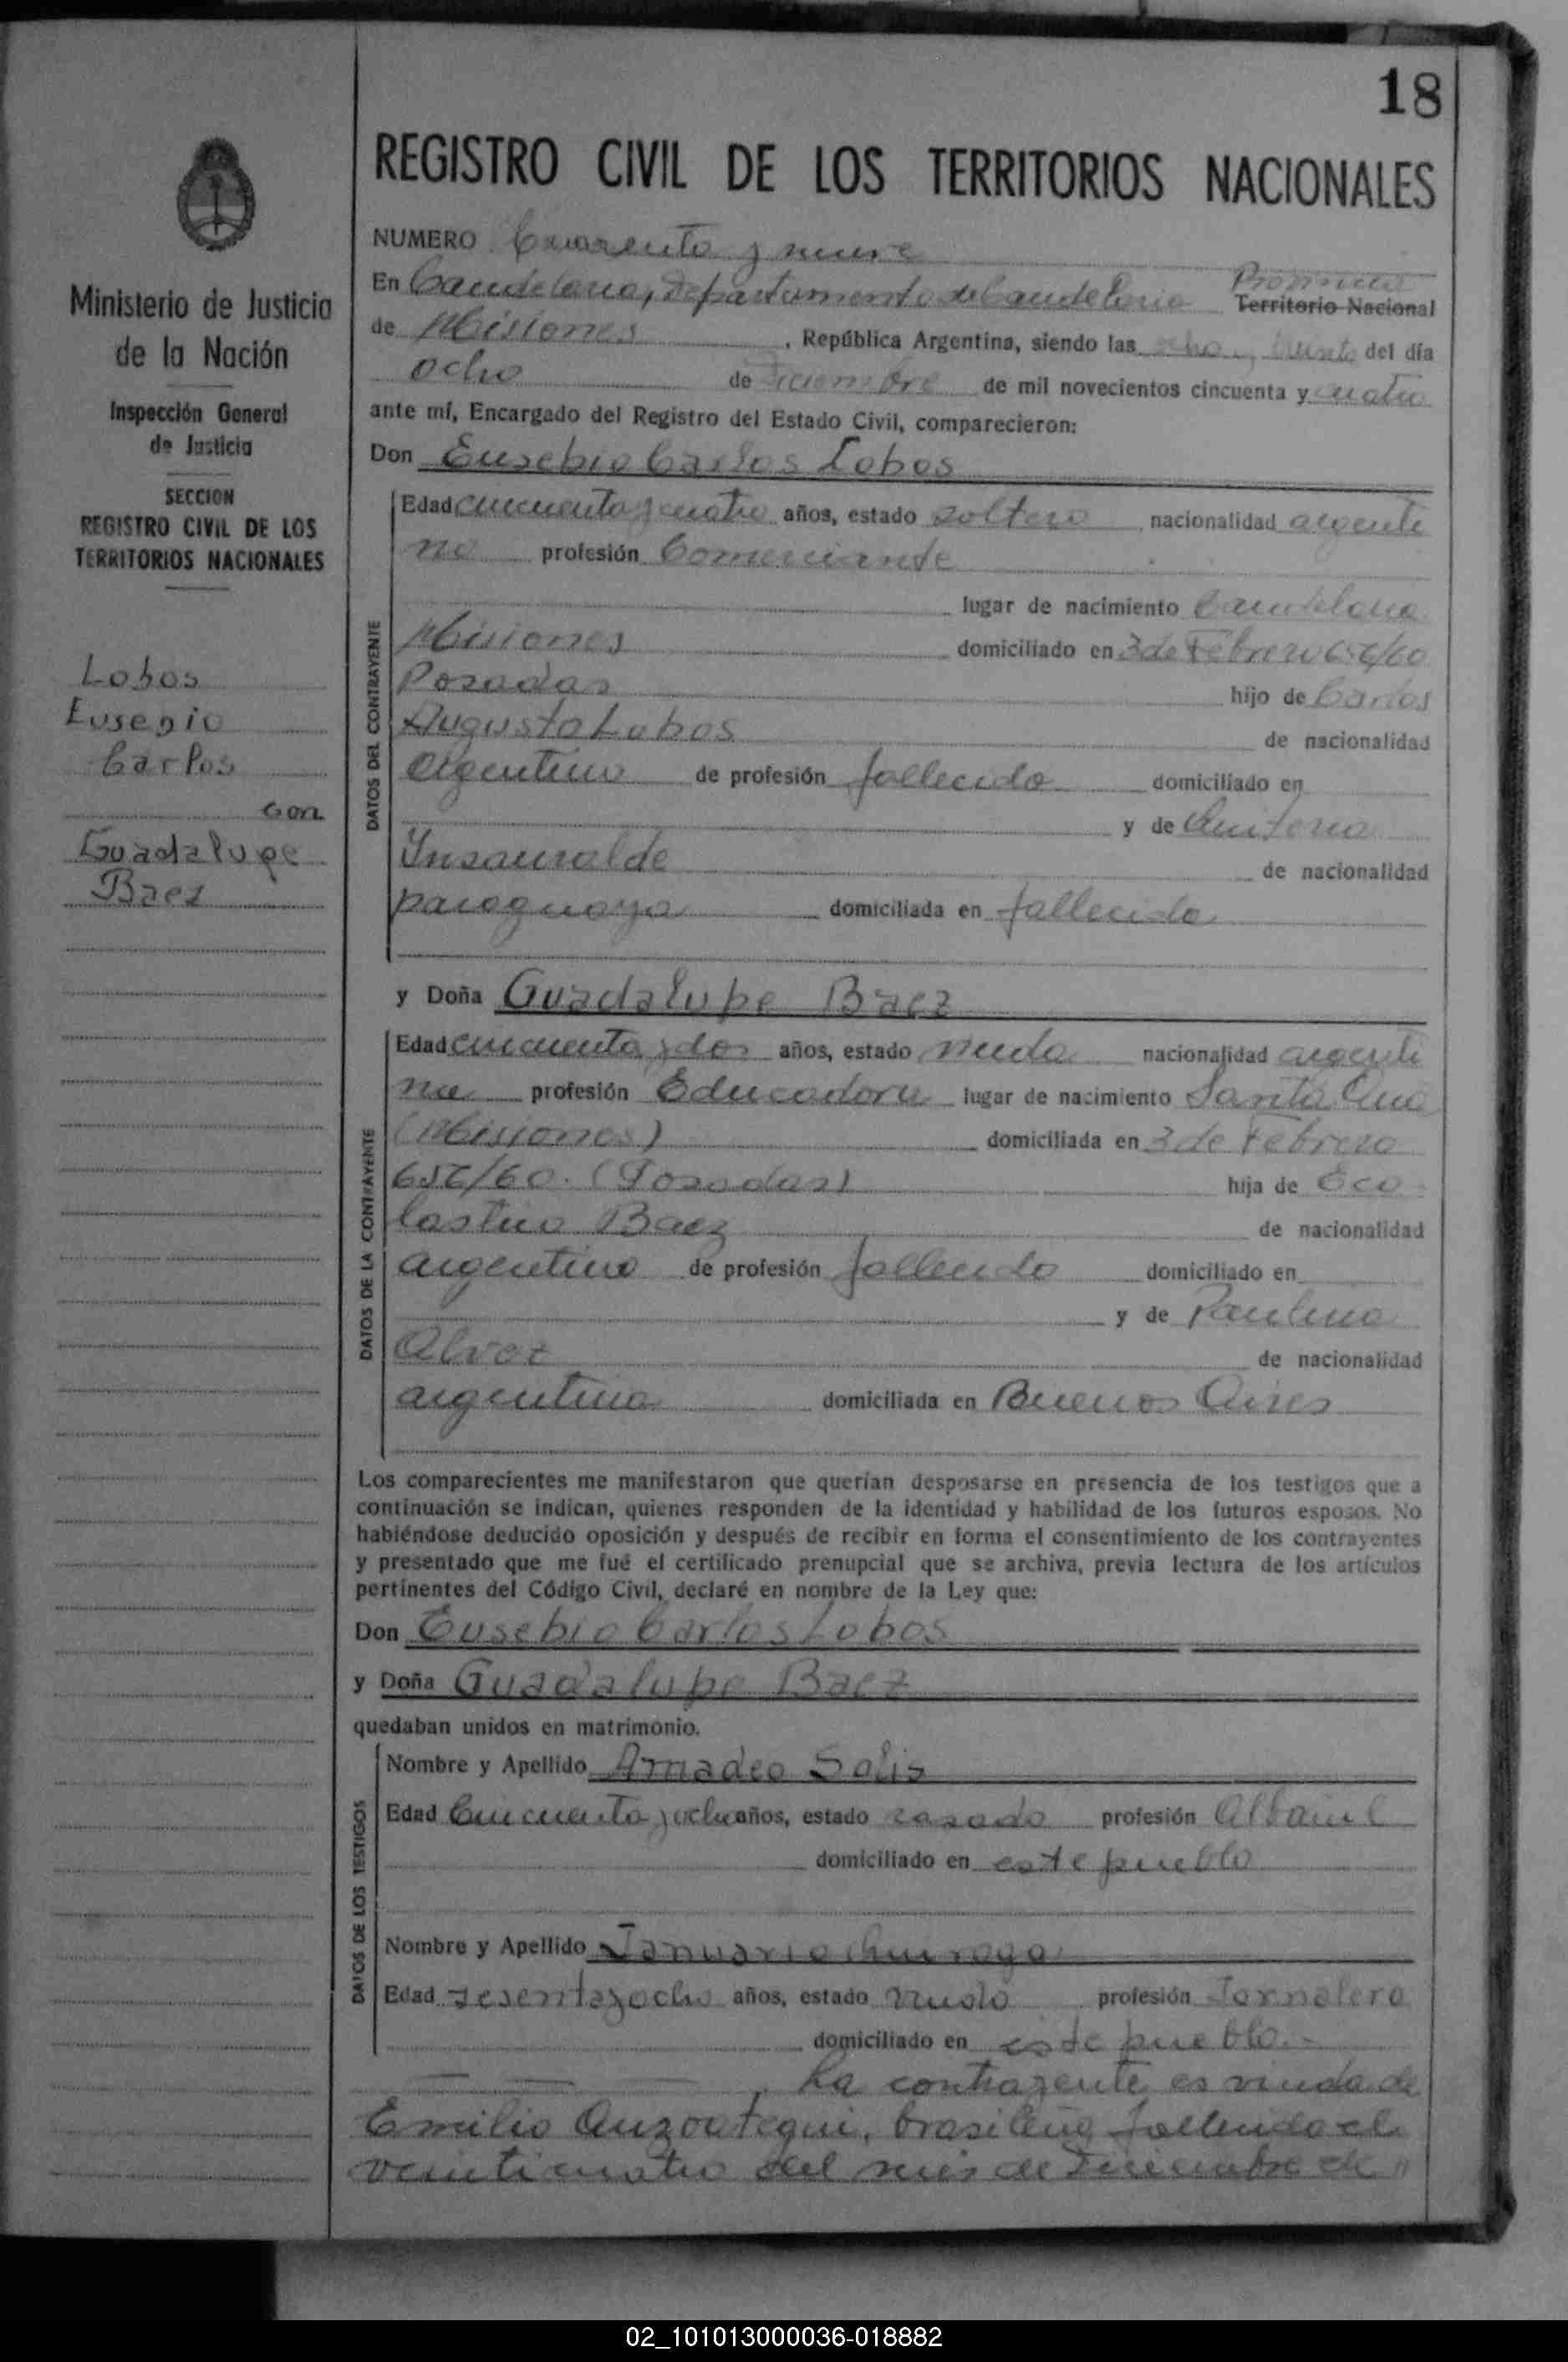 18
REGISTRO CIVIL DE LOS TERRITORIOS NACIONALES
Ministerio de Justicia
de la Nación
Inspección General
de Justicia
SECCION
REGISTRO CIVIL DE LOS
TERRITORIOS NACIONALES
Lobos
Eusebio
Carlos
con
Guadalupe
Baez
NUMERO Cuarenta y nueve
En Candelaria, Departamento de Candelaria Provincia Territorio Nacional
de Misiones, República Argentina, siendo las ocho y treinta del día
ocho de Diciembre de mil novecientos cincuenta y cuatro
ante mí, Encargado del Registro del Estado Civil, comparecieron:
Don Eusebio Carlos Lobos
DATOS DEL CONTRAYENTE
Edad cincuenta y cuatro años, estado soltero nacionalidad argenti
no profesión Comerciante
lugar de nacimiento Candelaria
Misiones domiciliado en 3 de Febrero 656/60
Posadas hijo de Carlos
Augusto Lobos de nacionalidad
argentino de profesión fallecido domiciliado en
y de
Insaurralde de nacionalidad
paraguaya domiciliada en fallecida
y Doña Guadalupe Baez
DATOS DE LA CONTRAYENTE
Edad cincuenta y dos años, estado viuda nacionalidad argenti
na profesión Educadora lugar de nacimiento Santa Ana
(Misiones) domiciliada en 3 de Febrero
656/60. (Posadas) hija de Eco
lastico Baez de nacionalidad
argentino de profesión fallecido domiciliado en
y de Paulina
Alvez de nacionalidad
argentina domiciliada en Buenos Aires
Los comparecientes me manifestaron que querían desposarse en presencia de los testigos que a
continuación se indican, quienes responden de la identidad y habilidad de los futuros esposos. No
habiéndose deducido oposición y después de recibir en forma el consentimiento de los contrayentes
y presentado que me fué el certificado prenupcial que se archiva, previa lectura de los artículos
pertinentes del Código Civil, declaré en nombre de la Ley que:
Don Eusebio Carlos Lobos
y Doña Guadalupe Baez
quedaban unidos en matrimonio.
DATOS DE LOS TESTIGOS
Nombre y Apellido Amadeo Solis
Edad Cincuenta y ocho años, estado casado profesión Albañil
domiciliado en este pueblo
Nombre y Apellido Januario Quiroga
Edad sesenta y ocho años, estado viudo profesión Jornalero
domiciliado en este pueblo.-
La contrayente es viuda de
Emilio Anzoategui, brasileño fallecido el
veinticuatro del mes de Diciembre de
02_101013000036-018882